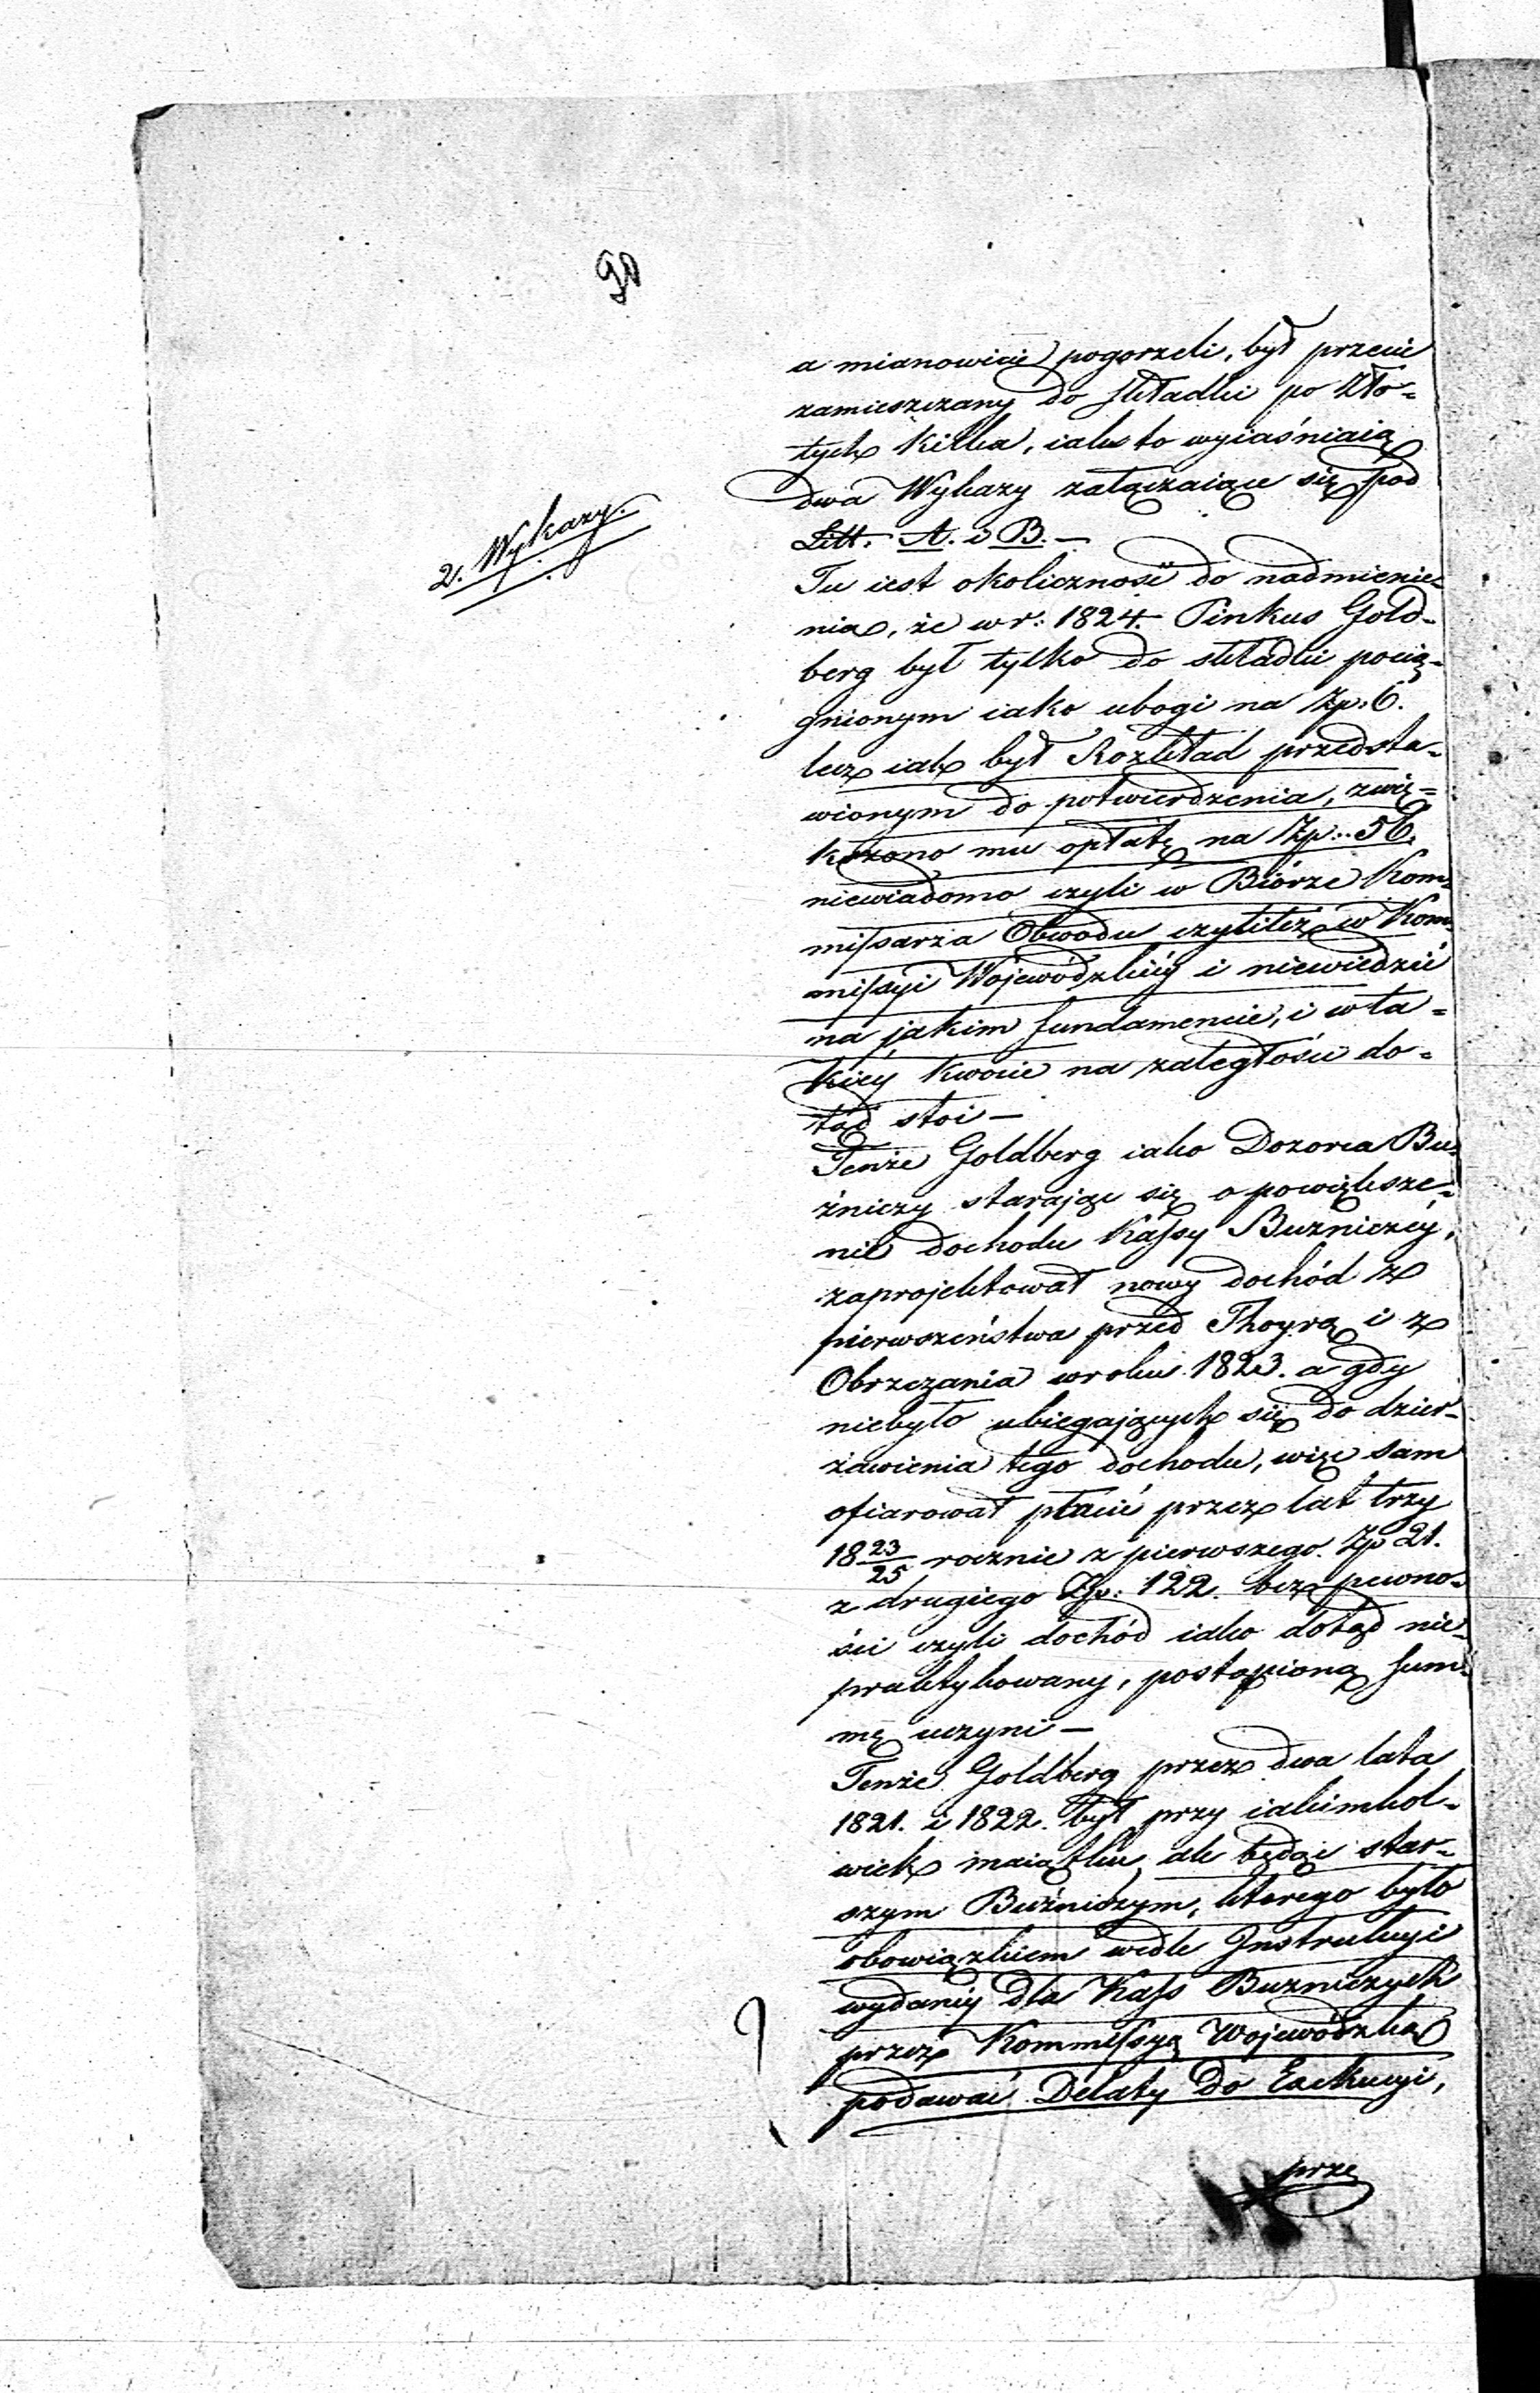 90
a mianowicie pogorzeli, był przecie
zamieszczany do składki po Zło=
tych kilka, iako to wyiaśniaią
dwa Wykazy załączaiące się pod
Litt. A. i B. —
2. Wykazy.
Tu iest okoliczność do nadmienie=
nia, że w r: 1824. Pinkus Gold=
berg był tylko do składki pocią=
gnionym iako ubogi na Zp: 6.
lecz iak był Rozkład przedsta=
wionym do potwierdzenia, zwię=
kszono mu opłatę na Zp: 56.
niewiadomo czyli w Biórze Kom=
missarza Obwodu czyliteż w Kom=
missyi Wojewódzkiéy i niewiedzić
na jakim fundamencie, i w ta=
kiéy kwocie na zaległości do=
tąd stoi —
Tenże Goldberg iako Dozorca Bu=
źniczy starając się o powiększe=
nie dochodu Kassy Bużniczéy,
zaprojektował nowy dochód z
pierwszeństwa przed Thoyrą i z
Obrzezania w roku 1823. a gdy
niebyło ubiegających się do dzier=
żawienia tego dochodu, więc sam
ofiarował płacić przez lat trzy
18 23/25 rocznie z pierwszego Zp 21.
z drugiego Zp: 122. bez pewno=
ści czyli dochód iako dotąd nie=
praktykowany, postąpioną sum=
mę uczyni —
Tenże Goldberg przez dwa lata
1821. i 1822. był przy iakimkol=
wiek maiątku, ale będąc star=
szym Buźniczym, którego było
obowiązkiem wedle Instrukcyi
wydanéy dla Kass Buzniczych
przez Kommissyą Wojewódzką
podawać Delaty do Exekucyi,
prze